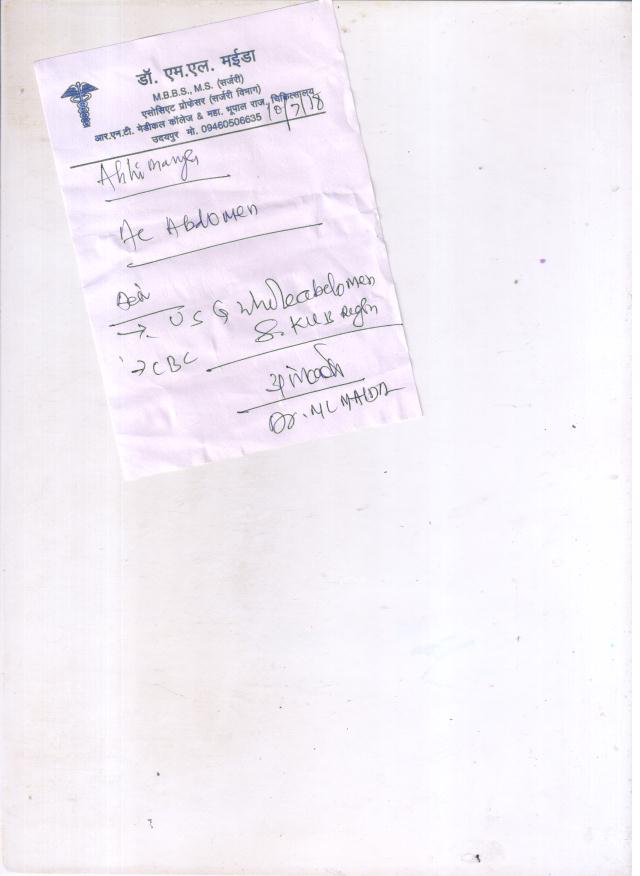 डॉ. एम.एल. मईडा
M.B.B.S., M.S. (सर्जरी)
एसोसिएट प्रोफेसर (सर्जरी विभाग)
आर.एन.टी. मेडीकल कॉलेज & महा. भूपाल राज. चिकित्सालय
उदयपुर मो. 09460506635
10/7/18
Ac Abdomen
→ USG whole abdomen
& KUB region
→ CBC
Dr. ML MAIDA